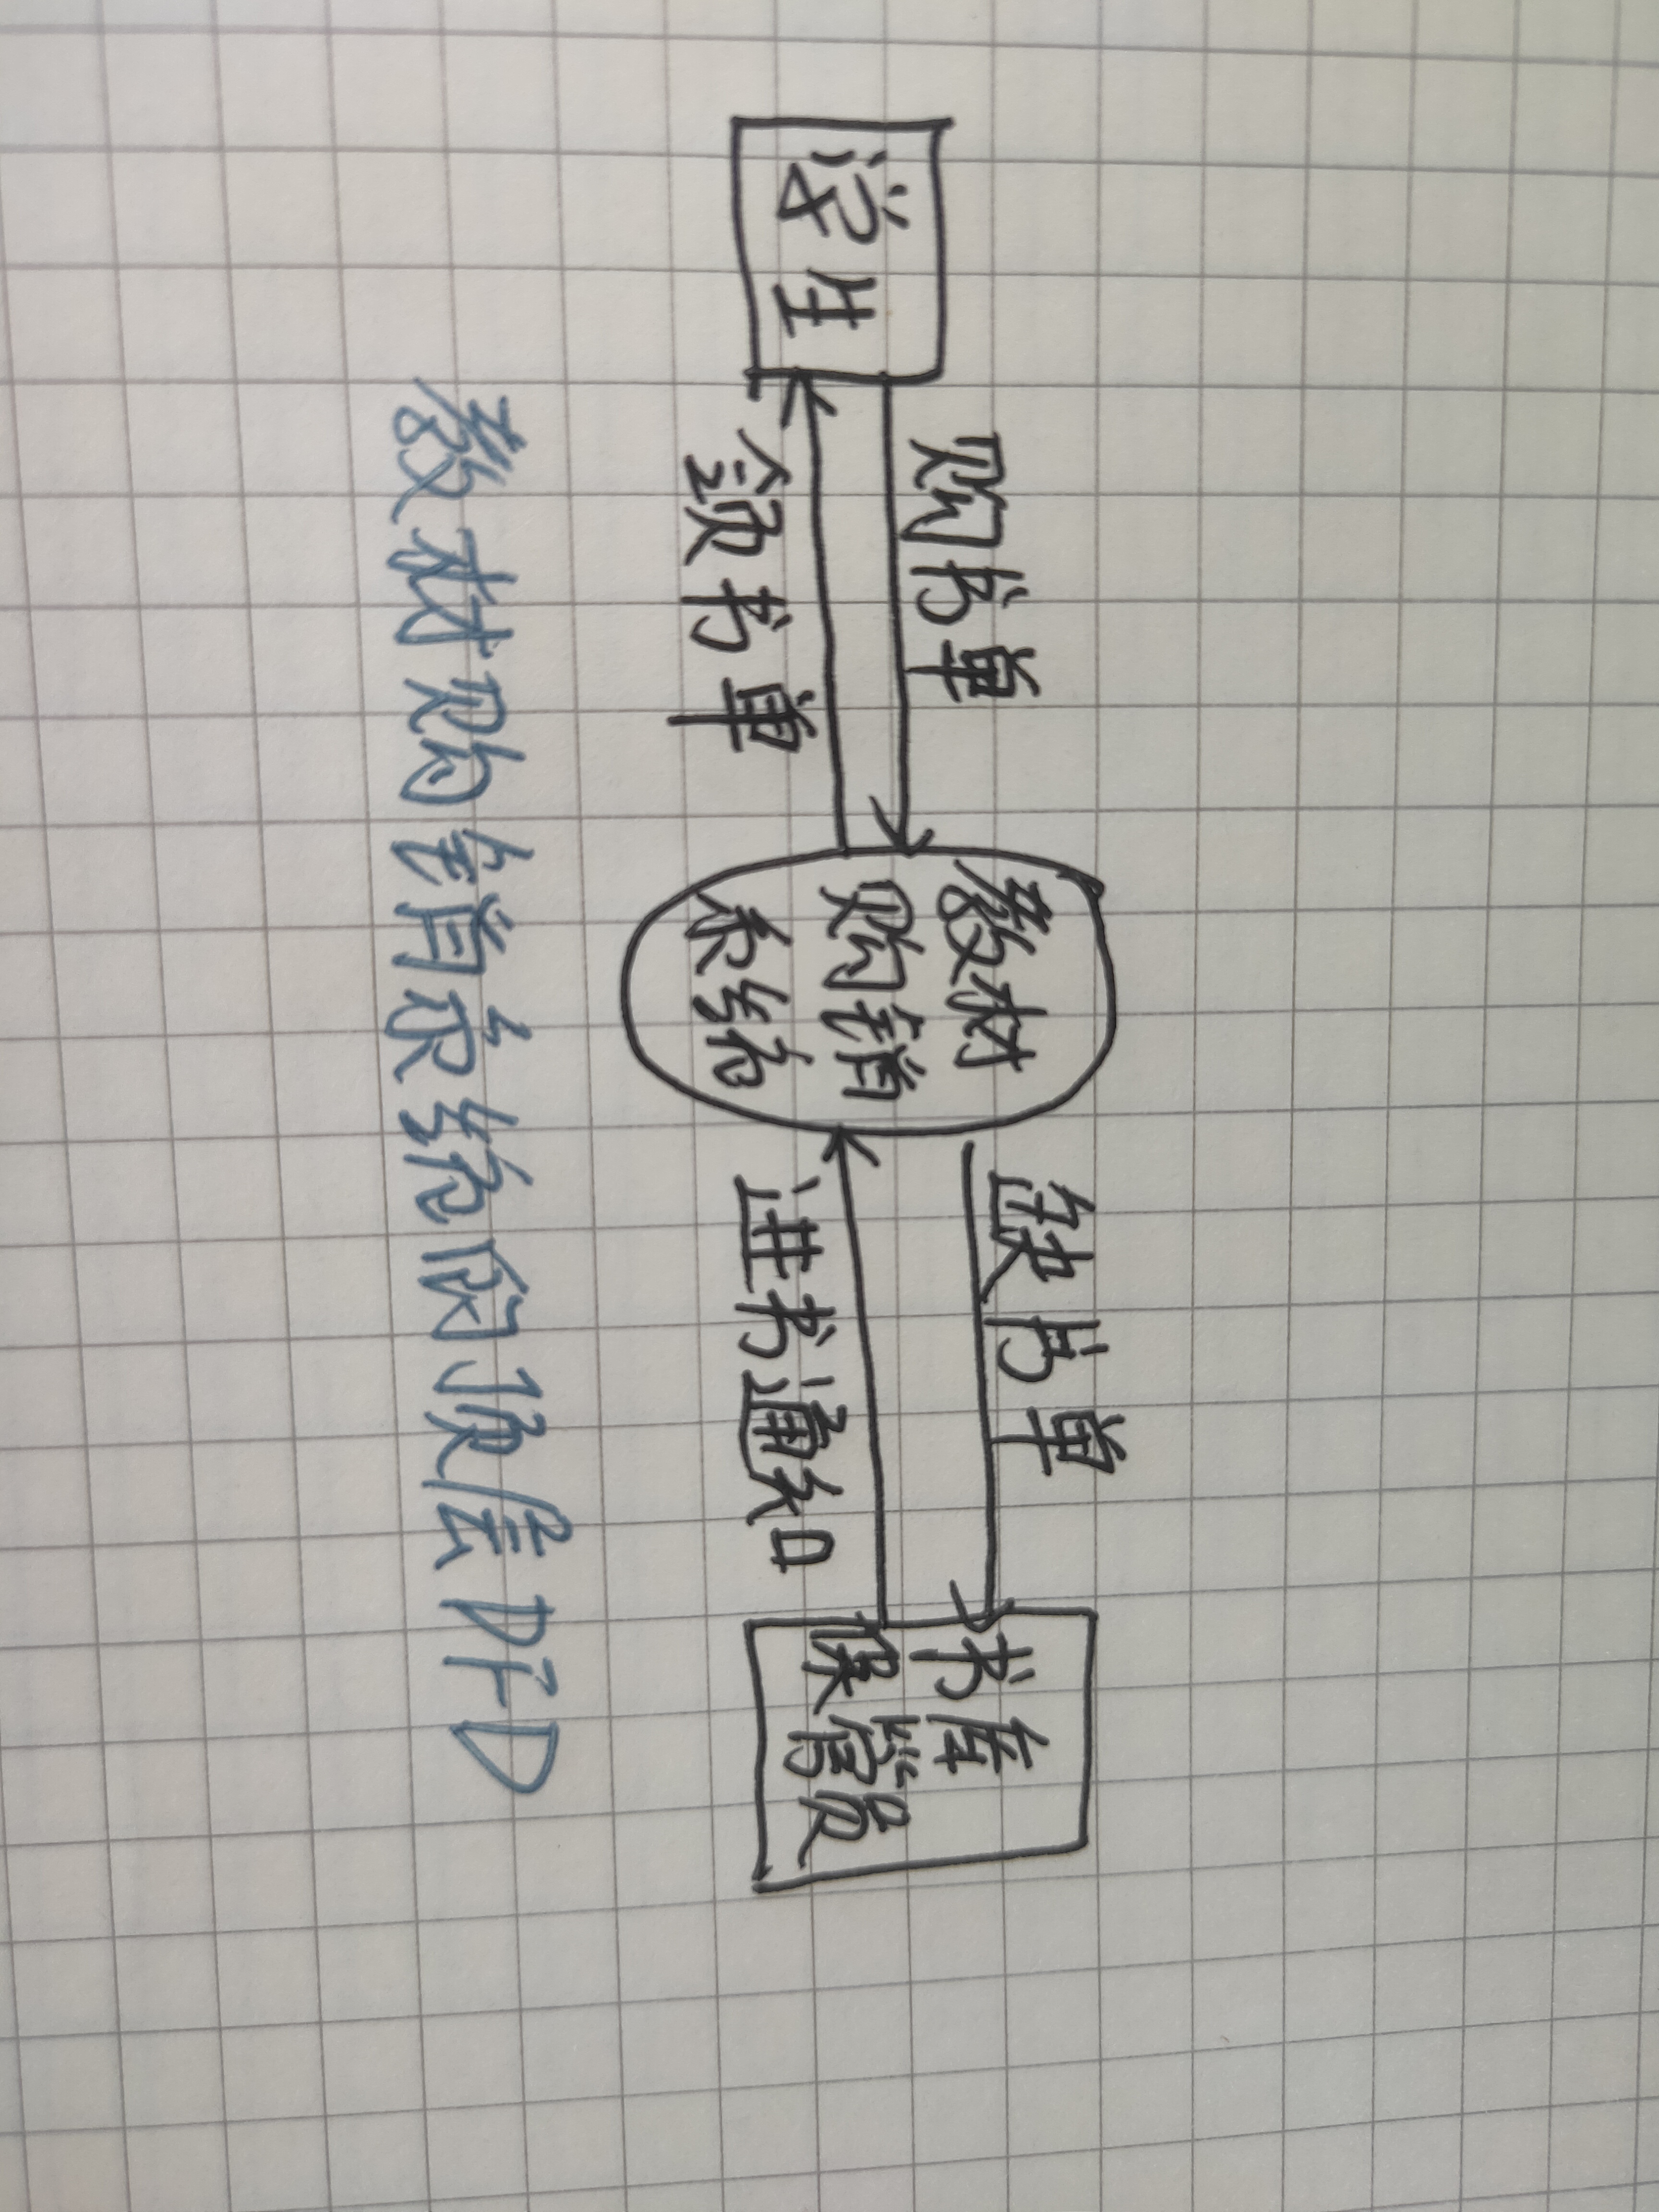 学生
购书单
领书单
教材
购销
系统
缺书单
进书通知
书库
保管员
教材购销系统的顶层DFD